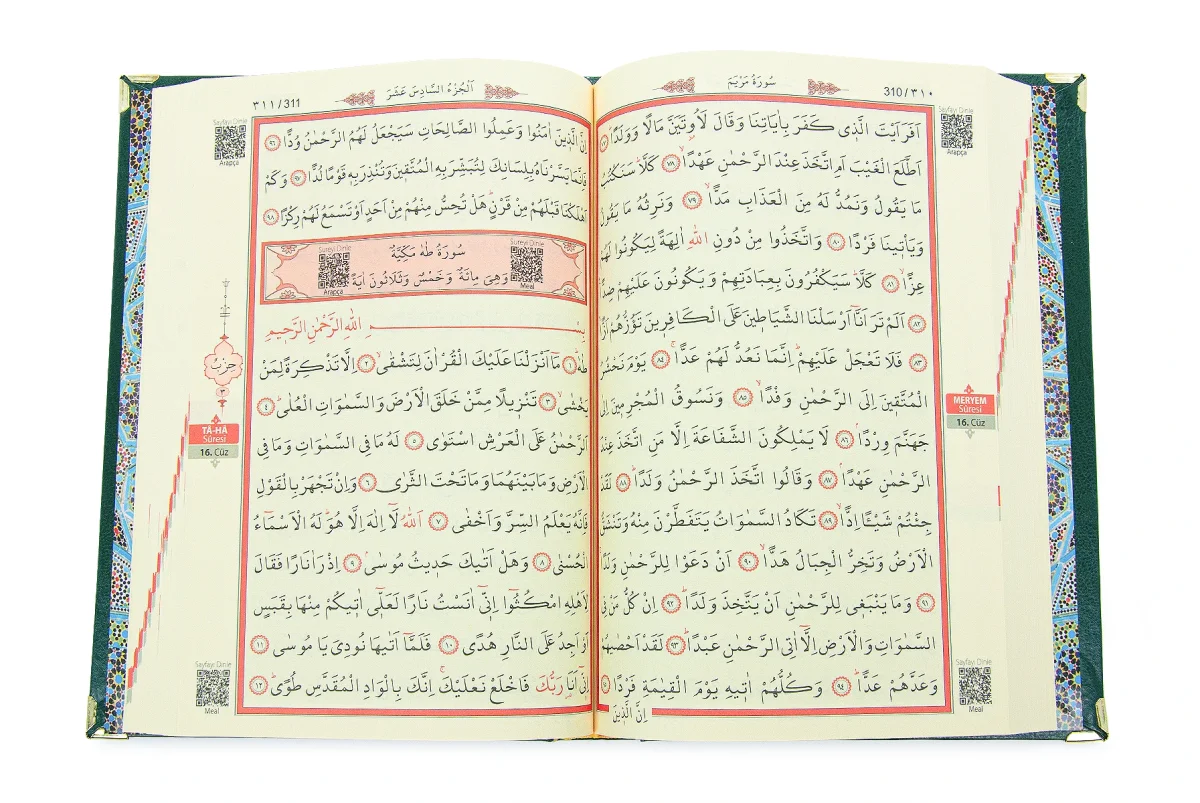 310/٣١٠
سُورَةُ مَرْيَمَ
Sayfayı Dinle
Arapça
اَفَرَاَيْتَ الَّذ۪ي كَفَرَ بِاٰيَاتِنَا وَقَالَ لَاُو۫تَيَنَّ مَالًا وَوَلَدًاۜ
اَطَّلَعَ الْغَيْبَ اَمِ اتَّخَذَ عِنْدَ الرَّحْمٰنِ عَهْدًاۙ ﴿٧٨﴾ كَلَّاۜ سَنَكْتُبُ
مَا يَقُولُ وَنَمُدُّ لَهُ مِنَ الْعَذَابِ مَدًّاۙ ﴿٧٩﴾ وَنَرِثُهُ مَا يَقُولُ
وَيَأْت۪ينَا فَرْدًا ﴿٨٠﴾ وَاتَّخَذُوا مِنْ دُونِ اللّٰهِ اٰلِهَةً لِيَكُونُوا لَهُمْ
عِزًّاۙ ﴿٨١﴾ كَلَّاۜ سَيَكْفُرُونَ بِعِبَادَتِهِمْ وَيَكُونُونَ عَلَيْهِمْ ضِدًّا
﴿٨٢﴾ اَلَمْ تَرَ اَنَّٓا اَرْسَلْنَا الشَّيَاط۪ينَ عَلَى الْكَافِر۪ينَ تَؤُزُّهُمْ اَزًّاۙ
﴿٨٣﴾ فَلَا تَعْجَلْ عَلَيْهِمْۜ اِنَّمَا نَعُدُّ لَهُمْ عَدًّاۚ ﴿٨٤﴾ يَوْمَ نَحْشُرُ
الْمُتَّق۪ينَ اِلَى الرَّحْمٰنِ وَفْدًاۙ ﴿٨٥﴾ وَنَسُوقُ الْمُجْرِم۪ينَ اِلٰى
جَهَنَّمَ وِرْدًاۢ ﴿٨٦﴾ لَا يَمْلِكُونَ الشَّفَاعَةَ اِلَّا مَنِ اتَّخَذَ عِنْدَ
الرَّحْمٰنِ عَهْدًاۢ ﴿٨٧﴾ وَقَالُوا اتَّخَذَ الرَّحْمٰنُ وَلَدًاۜ ﴿٨٨﴾ لَقَدْ
جِئْتُمْ شَيْـًٔا اِدًّاۙ ﴿٨٩﴾ تَكَادُ السَّمٰوَاتُ يَتَفَطَّرْنَ مِنْهُ وَتَنْشَقُّ
الْاَرْضُ وَتَخِرُّ الْجِبَالُ هَدًّاۙ ﴿٩٠﴾ اَنْ دَعَوْا لِلرَّحْمٰنِ وَلَدًاۚ
﴿٩١﴾ وَمَا يَنْبَغ۪ي لِلرَّحْمٰنِ اَنْ يَتَّخِذَ وَلَدًاۜ ﴿٩٢﴾ اِنْ كُلُّ مَنْ فِي
السَّمٰوَاتِ وَالْاَرْضِ اِلَّٓا اٰتِي الرَّحْمٰنِ عَبْدًاۜ ﴿٩٣﴾ لَقَدْ اَحْصٰيهُمْ
وَعَدَّهُمْ عَدًّاۜ ﴿٩٤﴾ وَكُلُّهُمْ اٰت۪يهِ يَوْمَ الْقِيٰمَةِ فَرْدًا
اِنَّ الَّذ۪ينَ
MERYEM
Sûresi
16. Cüz
Sayfayı Dinle
Meal
اَلْجُزْءُ السَّادِسَ عَشَرَ
٣١١/311
Sayfayı Dinle
Arapça
اِنَّ الَّذ۪ينَ اٰمَنُوا وَعَمِلُوا الصَّالِحَاتِ سَيَجْعَلُ لَهُمُ الرَّحْمٰنُ وُدًّا ﴿٩٦﴾
فَاِنَّمَا يَسَّرْنَاهُ بِلِسَانِكَ لِتُبَشِّرَ بِهِ الْمُتَّق۪ينَ وَتُنْذِرَ بِه۪ قَوْمًا لُدًّا ﴿٩٧﴾ وَكَمْ
اَهْلَكْنَا قَبْلَهُمْ مِنْ قَرْنٍۜ هَلْ تُحِسُّ مِنْهُمْ مِنْ اَحَدٍ اَوْ تَسْمَعُ لَهُمْ رِكْزًا ﴿٩٨﴾
Sûreyi Dinle
Meal
سُورَةُ طٰهٰ مَكِّيَّةٌ
Sûreyi Dinle
Arapça
وَهِيَ مِائَةٌ وَخَمْسٌ وَثَلَاثُونَ اٰيَةً
بِسْمِ اللّٰهِ الرَّحْمٰنِ الرَّح۪يمِ
طٰهٰۜ ﴿١﴾ مَٓا اَنْزَلْنَا عَلَيْكَ الْقُرْاٰنَ لِتَشْقٰىۙ ﴿٢﴾ اِلَّا تَذْكِرَةً لِمَنْ
يَخْشٰىۙ ﴿٣﴾ تَنْز۪يلًا مِمَّنْ خَلَقَ الْاَرْضَ وَالسَّمٰوَاتِ الْعُلٰىۜ ﴿٤﴾
اَلرَّحْمٰنُ عَلَى الْعَرْشِ اسْتَوٰى ﴿٥﴾ لَهُ مَا فِي السَّمٰوَاتِ وَمَا فِي
الْاَرْضِ وَمَا بَيْنَهُمَا وَمَا تَحْتَ الثَّرٰى ﴿٦﴾ وَاِنْ تَجْهَرْ بِالْقَوْلِ
فَاِنَّهُ يَعْلَمُ السِّرَّ وَاَخْفٰى ﴿٧﴾ اَللّٰهُ لَٓا اِلٰهَ اِلَّا هُوَۜ لَهُ الْاَسْمَٓاءُ
الْحُسْنٰى ﴿٨﴾ وَهَلْ اَتٰيكَ حَد۪يثُ مُوسٰىۢ ﴿٩﴾ اِذْ رَاٰ نَارًا فَقَالَ
لِاَهْلِهِ امْكُثُٓوا اِنّ۪ٓي اٰنَسْتُ نَارًا لَعَلّ۪ٓي اٰت۪يكُمْ مِنْهَا بِقَبَسٍ
اَوْ اَجِدُ عَلَى النَّارِ هُدًى ﴿١٠﴾ فَلَمَّٓا اَتٰيهَا نُودِيَ يَا مُوسٰى ﴿١١﴾
اِنّ۪ٓي اَنَا۬ رَبُّكَ فَاخْلَعْ نَعْلَيْكَۚ اِنَّكَ بِالْوَادِ الْمُقَدَّسِ طُوًىۜ ﴿١٢﴾
حِزْبُ
٣
TÂ-HÂ
Sûresi
16. Cüz
Sayfayı Dinle
Meal